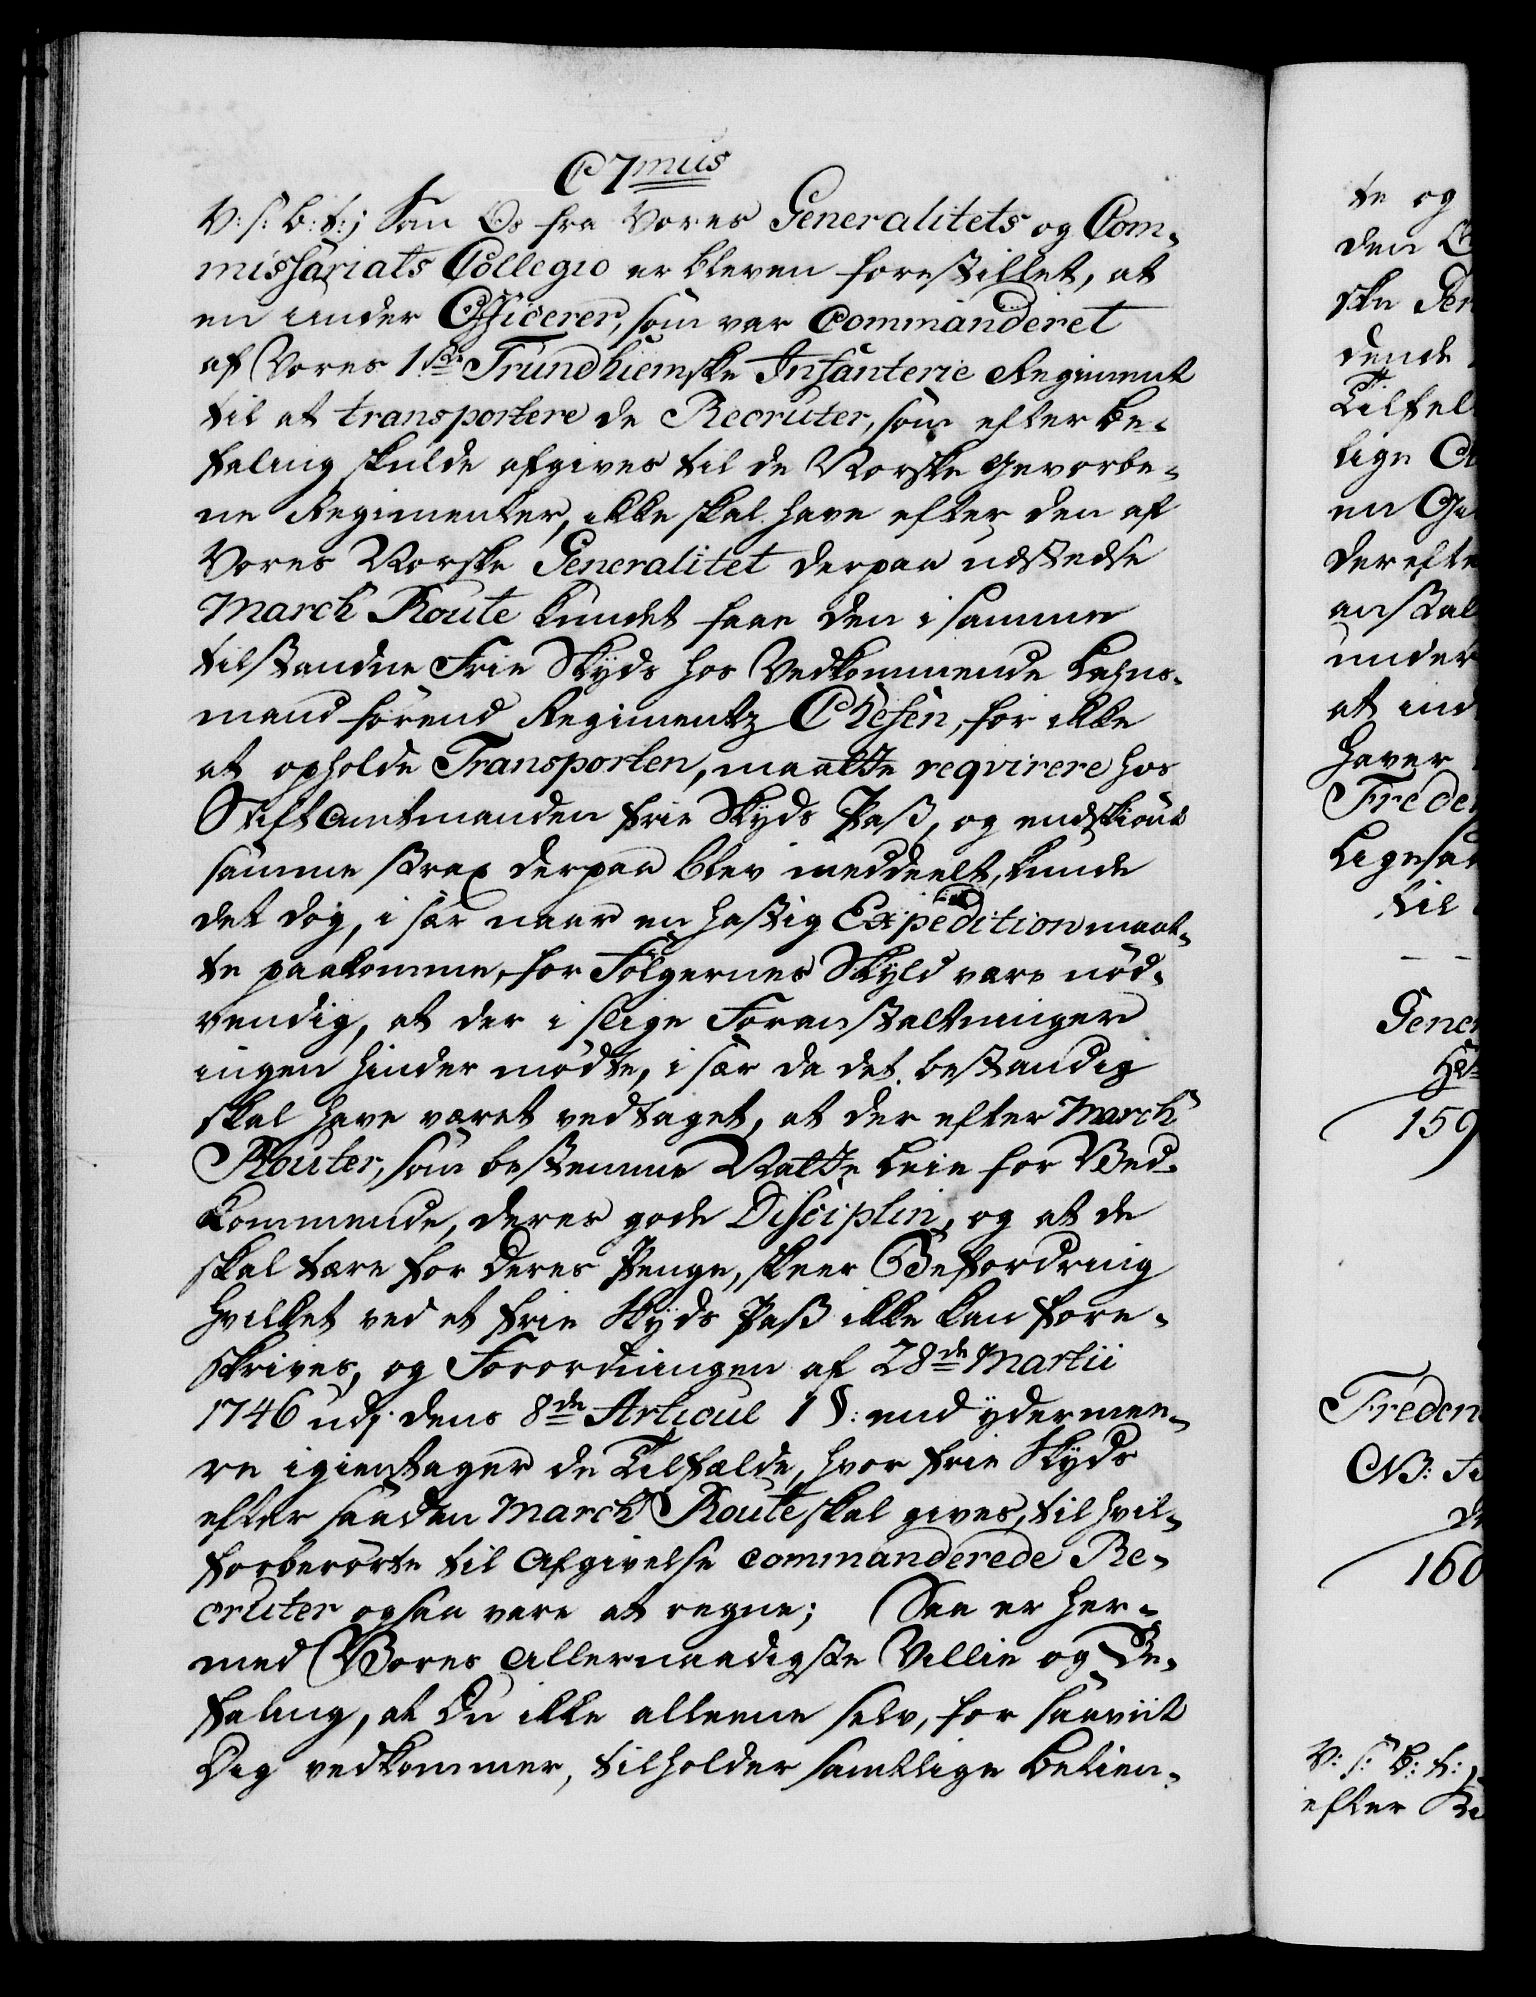 C7mus
V: s: b: t:; Som Os fra Vores Generalitets og Com-
missariats Collegio er bleven forestillet, at
en under Officerer, som var Commanderet
af Vores 1ste Trundhiemske Infanterie Regiment
til at transportere de Recruter, som efter be-
faling skulde afgives til de Norske gevorbe-
ne Regimenter, ikke skal have efter den af
Vores Norske Generalitet derpaa udstedte
March Route kundet faae den i samme
tilstandne Frie Skyds hos Vedkommende Lehns-
mand førend Regimentz Chefen, for ikke
at opholde Transporten, maatte reqvirere hos
Stiftamtmanden frie Skyds Pass, og endskiønt
samme strax derpaa blev meddeelt, kunde
det dog, i sær naar en hastig Expedition maat-
te paakomme, for Følgernes Skyld være nød-
vendig, at der i slige Foranstaltninger
ingen hinder mødte, i sær da det bestandig
skal have været vedtaget, at der efter March
Router, som bestemme Natte Leie for Ved-
kommende, deres gode Disciplin, og at de
skal tære for deres Penge, skeer Befordring
hvilket ved et frie Skyds Pass ikke kan fore-
skrives, og Forordningen af 28de Martii
1746 udj dens 8de Articul 1 §: end ydermee-
re igientager de Tilfælde, hvor frie Skyds
efter saadan March Route skal gives, til hvil-
forberørte til Afgivelse commanderede Re-
cruter ogsaa vare at regne; Saa er her-
med Vores Allernaadigste Villie og Be-
faling, at Du ikke alleene selv, for saaviit
Dig vedkommer, tilholder samtlige Betien-
te og
den
ske
dende
lige
en
under
haver
til
159
160
V: s: b: t:
efter